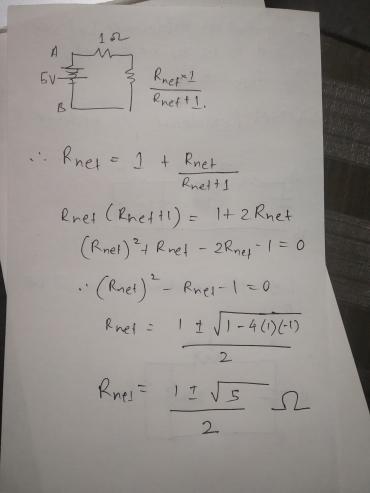 1 Ω
A
5V
B
Rnet × 1
Rnet + 1.
∴ Rnet = 1 + Rnet
Rnet + 1
Rnet (Rnet + 1) = 1 + 2 Rnet
(Rnet)² + Rnet - 2Rnet - 1 = 0
∴ (Rnet)² - Rnet - 1 = 0
Rnet = 1 ± √1 - 4(1)(-1)
2
Rnet = 1 ± √5 Ω
2